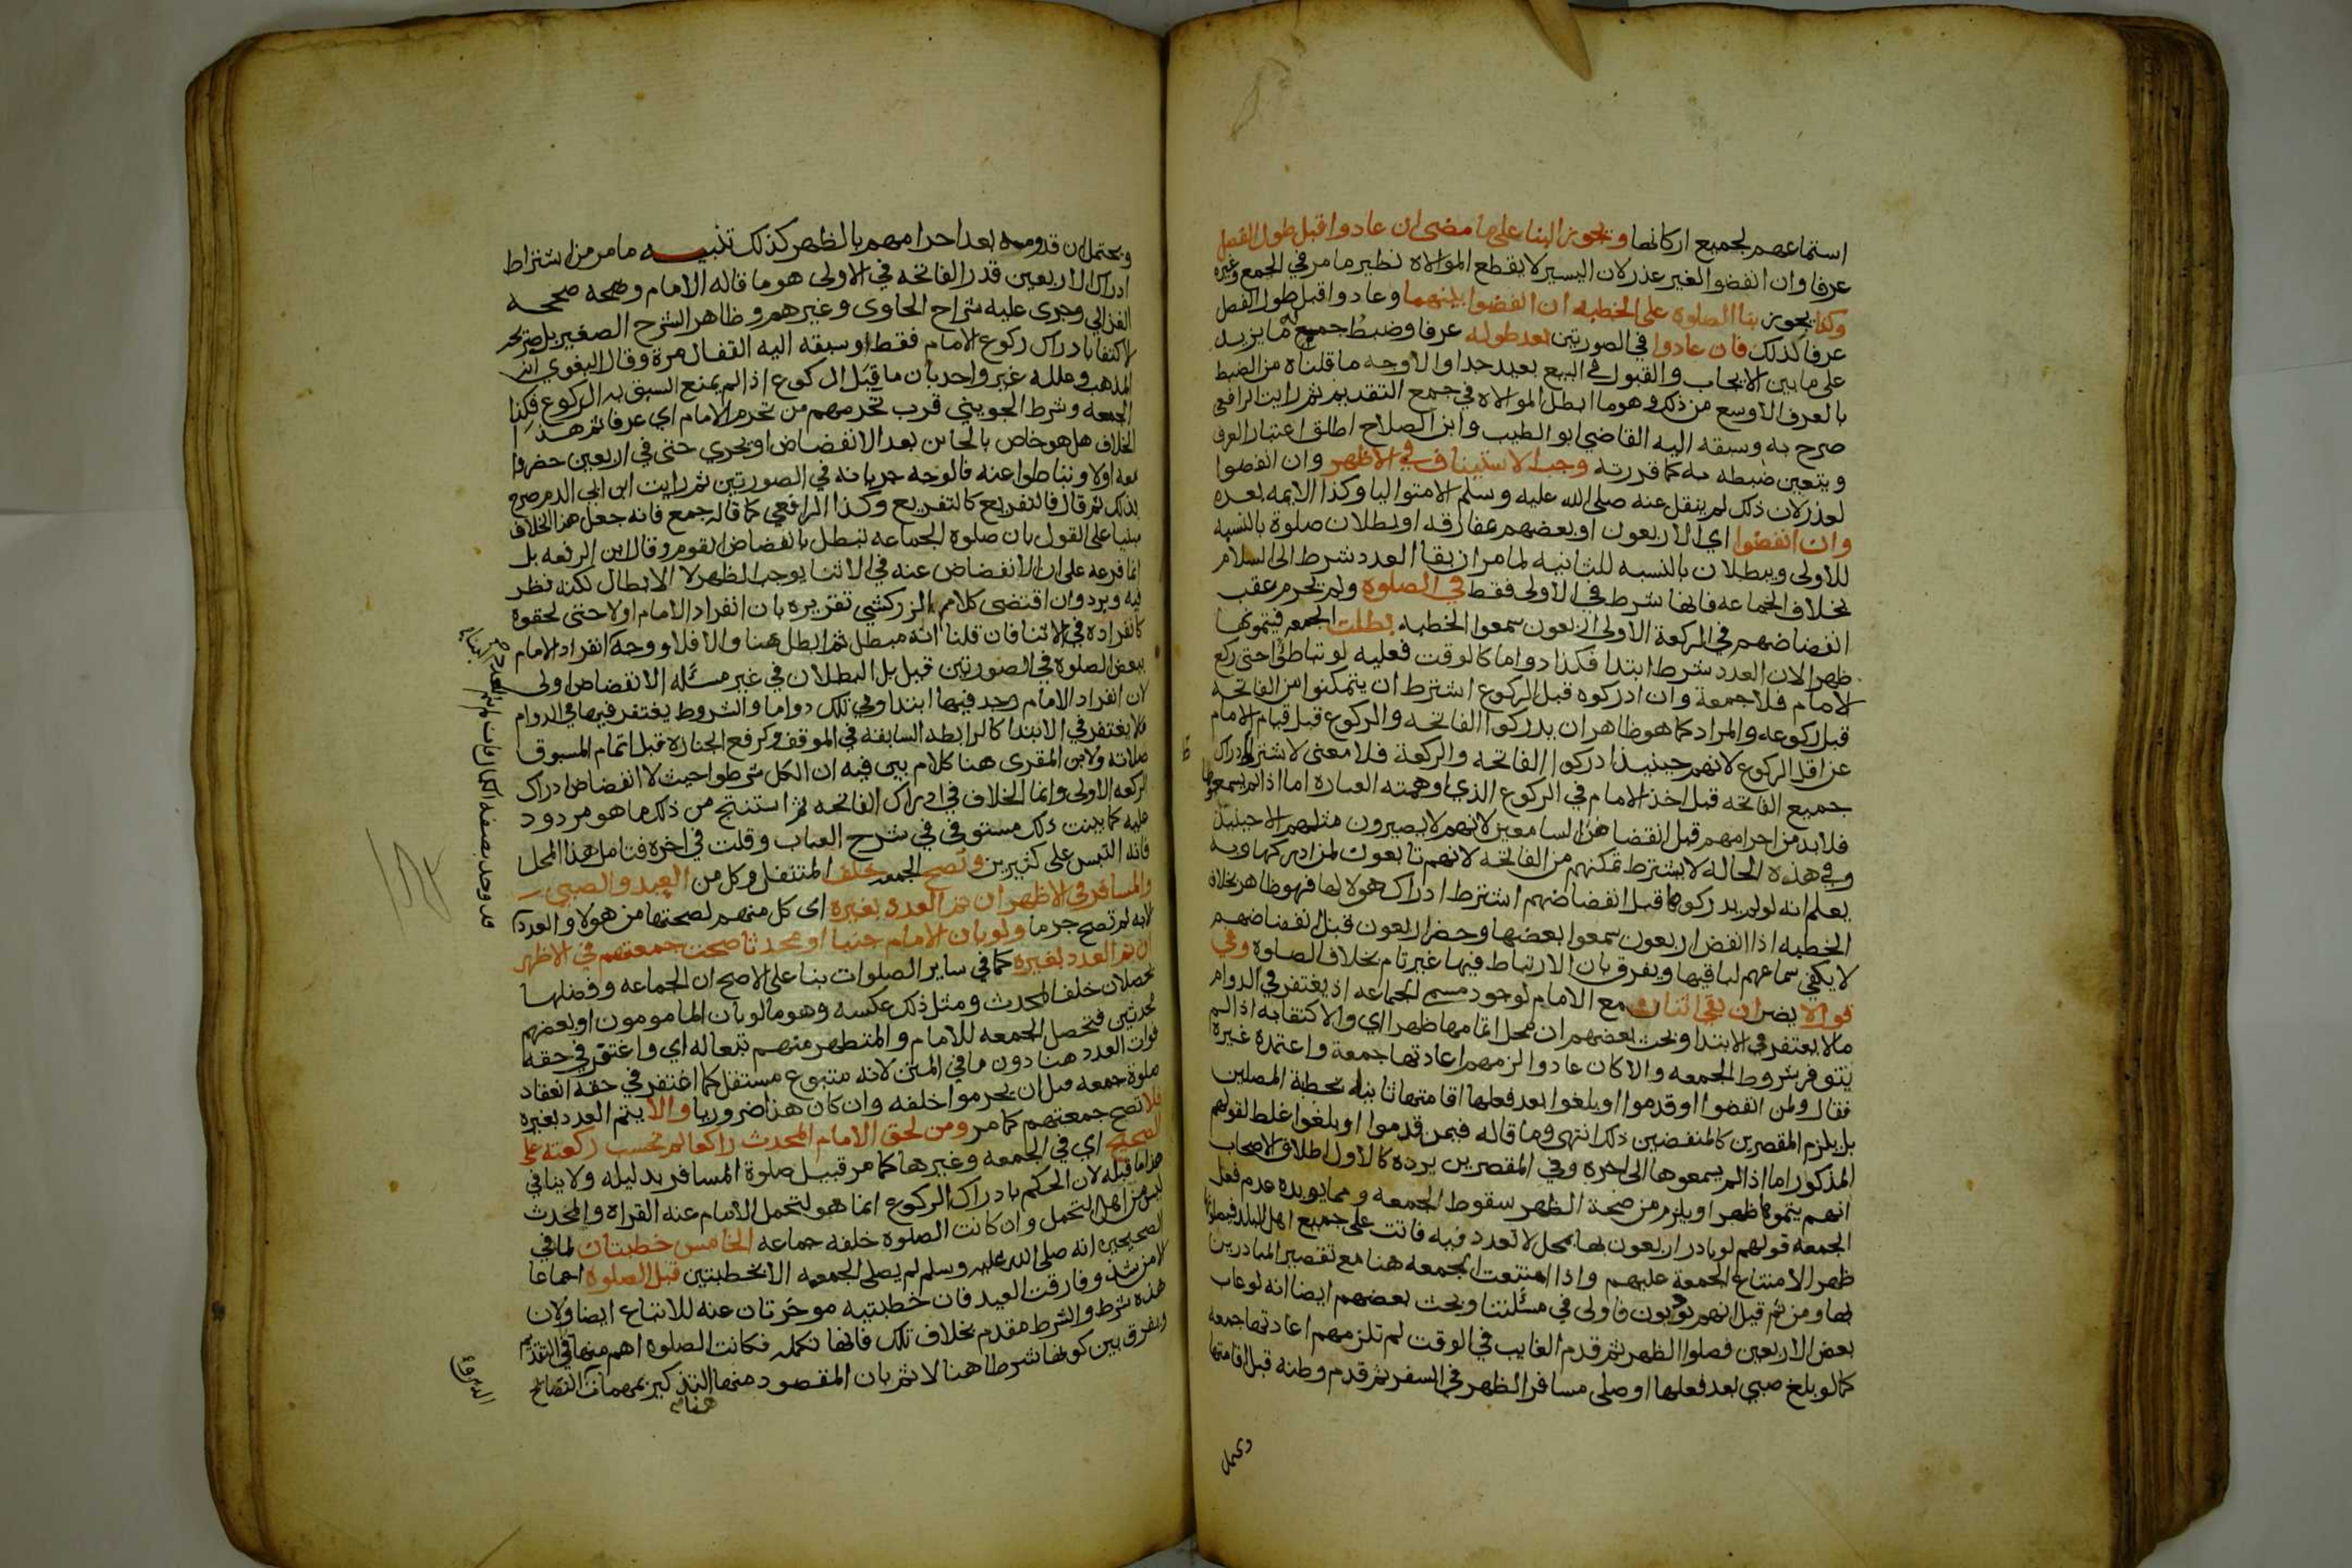 استماعهم لجميع اركانها ويجوز البنا على ما مضى ان عادوا قبل طول الفصل
عرفا وان انفضوا لغير عذر لان اليسير لا يقطع الموالاه نظير ما مر في الجمع وغيره
وكذا يجوز بنا الصلوه على الخطبه ان انفضوا بينهما وعادوا قبل طول الفصل
عرفا كذلك فان عادوا في الصورتين بعد طوله عرفا وضبط جمع له ما يزيد
على ما بين الايجاب والقبول في البيع بعيد جدا والاوجه ما قلناه من الضبط
بالعرف الاوسع من ذلك وهو ما ابطل الموالاه في جمع التقديم ثم رايت الرافعي
صرح به وسبقه اليه القاضي ابو الطيب وابن الصلاح اطلق اعتبار العرف
ويتعين ضبطه به كما قررته وجب الاستيناف في الاظهر وان انفضوا
لعذر لان ذلك لم ينقل عنه صلى الله عليه وسلم الا متواليا وكذا الايمه بعده
وان انفضوا اي الاربعون او بعضهم بمفارقه او بطلان صلوة بالنسبه
للاولى وببطلان بالنسبه للثانيه لما مر ان بقا العدد شرط الى السلام
بخلاف الجماعه فانها شرط في الاولى فقط في الصلوه ولم يحرم عقب
انفضاضهم في الركعة الاولى اربعون سمعوا الخطبه بطلت الجمعه فيتمونها
ظهر الان العدد شرط ابتدا فكذا دواما كالوقت فعليه لو تباطؤا حتى ركع
الامام فلا جمعة وان ادركوه قبل الركوع اشترط ان يتمكنوا من الفاتحه
قبل ركوعه والمراد كما هو ظاهر ان يدركوا الفاتحه والركوع قبل قيام الامام
عن اقل الركوع لانهم حينيذ ادركوا الفاتحه والركعة فلا معنى لاشتراط ادراك
جميع الفاتحه قبل اخذ الامام في الركوع الذي اوهمته العباره اما اذا لم يسمعوها
فلا بد من احرامهم قبل انفضاض السامعين لانهم لا يصيرون مثلهم الا حينيذ
وفي هذه الحاله لا يشترط تمكنهم من الفاتحه لانهم تابعون لمن ادركها وبه
يعلم انه لو لم يدركوها قبل انفضاضهم اشترط ادراك هولا لها فهو ظاهر بخلاف
الخطبه اذا انفض اربعون سمعوا بعضها وحضر اربعون قبل انفضاضهم
لا يكفي سماعهم لباقيها ويفرق بان الارتباط فيها غير تام بخلاف الصلوه وفي
قول لا يضر ان بقي اثنان مع الامام لوجود مسمى الجماعه اذ يغتفر في الدوام
ما لا يغتفر في الابتدا وبحث بعضهم ان محل اتمامها ظهرا اي والاكتفا به اذا لم
يتوفر شروط الجمعه والا كان عادوا لزمهم اعادتها جمعة واعتمده غيره
فقال ولمن انفضوا او قدموا او بلغوا بعد فعلها اقامتها ثانيا بخطبة المصلين
بل يلزم المقصرين كالمنفضين ذلك انتهى وما قاله فيمن قدموا او بلغوا غلط لقولهم
المذكور اما اذا لم يسمعوها الى اخره وفي المقصرين يرده كالاول اطلاق الاصحاب
انهم يتمونها ظهرا ويلزم من صحة الظهر سقوط الجمعه ومما يويده عدم فعل
الجمعه قولهم لو بادر اربعون بها بمحل لا تعدد فيه فاتت على جميع اهل البلد فيصلونها
ظهر الامتناع الجمعة عليهم واذا امتنعت الجمعه هنا مع تقصير المبادرين
بها ومن ثم قيل انهم يودبون فاولى في مسئلتنا وبحث بعضهم ايضا انه لو غاب
بعض الاربعين فصلوا الظهر ثم قدم الغايب في الوقت لم تلزمهم اعادتها جمعه
كما لو بلغ صبي بعد فعلها او صلى مسافر الظهر في السفر ثم قدم وطنه قبل اقامتها
ويحتمل
ويحتمل ان قدومه بعد احرامهم بالظهر كذلك تنبيه ما مر من اشتراط
ادراك الاربعين قدر الفاتحه في الاولى هو ما قاله الامام وصححه
الغزالي وجرى عليه شراح الحاوى وغيرهم وظاهر الشرح الصغير بل صريحه
الاكتفا بادراك ركوع الامام فقط وسبقه اليه القفال مرة وقال البغوي انه
المذهب وعلله غير واحد بان ما قبل الركوع اذا لم يمنع السبق به الركوع فكذا
الجمعه وشرط الجويني قرب تحرمهم من تحرم الامام اي عرفا ثم هذا
الخلاف هل هو خاص بالجاين بعد الانفضاض او يجري حتى في اربعين حضروا
معه اولا وتباطوا عنه فالوجه جريانه في الصورتين ثم رايت ابن ابي الدم صرح
بذلك ثم قال فالتفريع كالتفريع وكذا الرافعي كما قاله جمع فانه جعل هذا الخلاف
مبنيا على القول بان صلوه الجماعه تبطل بانفضاض القوم وقال ابن الرفعه بل
انما فرعه على ان الانفضاض عنه في الاثنا يوجب الظهر لا الابطال لكنه نظر
فيه ويرد وان اقتضى كلام الزركشي تقريره بان انفراد الامام اولا حتى لحقوه
كانفراده في الاثنا فان قلنا انه مبطل ثم ابطل هنا والا فلا ووجه انفراد الامام
ببعض الصلوه في الصورتين قبل بل البطلان في غير مسئله الانفضاض اولى
لان انفراد الامام وجد فيها ابتدا وفي تلك دواما والشروط يغتفر فيها في الدوام
ما لا يغتفر في الابتدا كالرابطه السابقه في الموقف وكرفع الجنازه قبل اتمام المسبوق
صلاته ولابن المقرى هنا كلام بين فيه ان الكل شرطوا حيث لا انفضاض ادراك
الركعه الاولى وانما الخلاف في ادراك الفاتحه ثم استنتج من ذلك ما هو مردود
عليه كما بينت ذلك مستوفى في شرح العباب وقلت في اخره فتامل هذا المحل
فانه التبس على كثيرين وتصح الجمعه خلف المتنفل وكل من العبد والصبي
والمسافر في الاظهر ان تم العدد بغيره اى كل منهم لصحتها من هولا والعدد
لانه لم تصح جزما ولو بان الامام جنبا او محدثا صحت جمعتهم في الاظهر
ان تم العدد بغيره كما في ساير الصلوات بنا على الاصح ان الجماعه وفضلها
يحصلان خلف المحدث ومثل ذلك عكسه وهو ما لو بان المامومون او بعضهم
محدثين فتحصل الجمعه للامام والمتطهر منهم تبعا له اي واغتفر في حقه
فوات العدد هنا دون ما في المتن لانه متبوع مستقل كما اغتفر في حقه انعقاد
صلوة جمعه قبل ان يحرموا خلفه وان كان هذا ضروريا والا يتم العدد بغيره
فلا تصح جمعتهم كما مر ومن لحق الامام المحدث راكعا لم تحسب ركعته على
الصحيح اي في الجمعه وغيرها كما مر قبيل صلوة المسافر بدليله ولا ينافي
هذا ما قبله لان الحكم بادراك الركوع انما هو لتحمل الامام عنه القراه والمحدث
ليس من اهل التحمل وان كانت الصلوه خلفه جماعه الخامس خطبتان لما في
الصحيحين انه صلى الله عليه وسلم لم يصلى الجمعه الا بخطبتين قبل الصلوه اجماعا
الا من شذ وفارقت العيد فان خطبتيه موخرتان عنه للاتباع ايضا ولان
هذه شرط والشرط مقدم بخلاف تلك فانها تكمله فكانت الصلوه اهم منها في التقديم
ويفرق بين كونها شرطا هنا لا ثم بان المقصود منها التذكير بمهمات المصالح